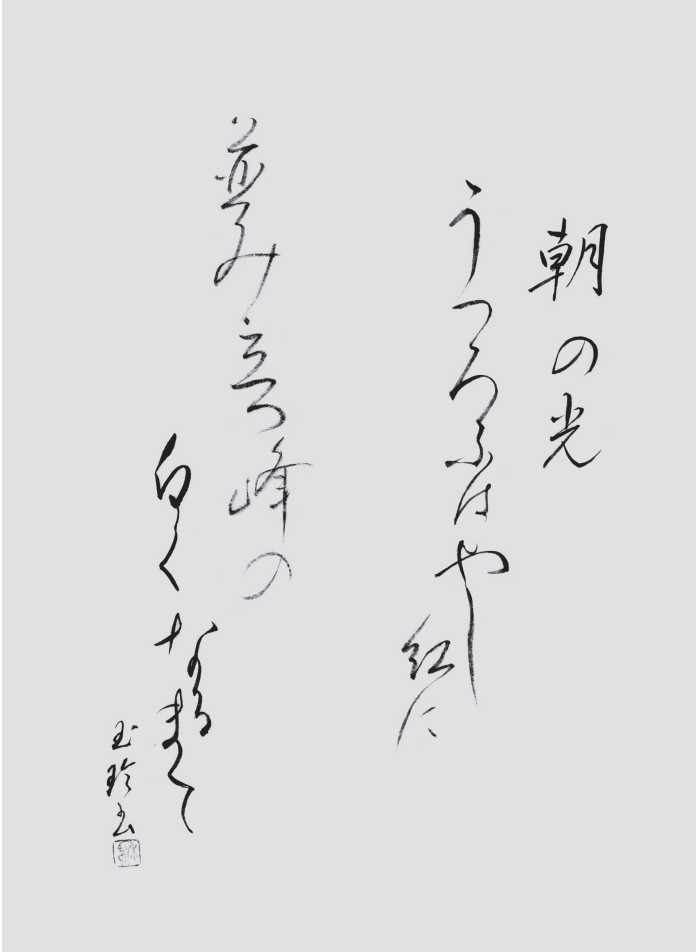 朝の光
うつろふはやし
紅に
並み立つ峰の
白くなるまて
玉玲書